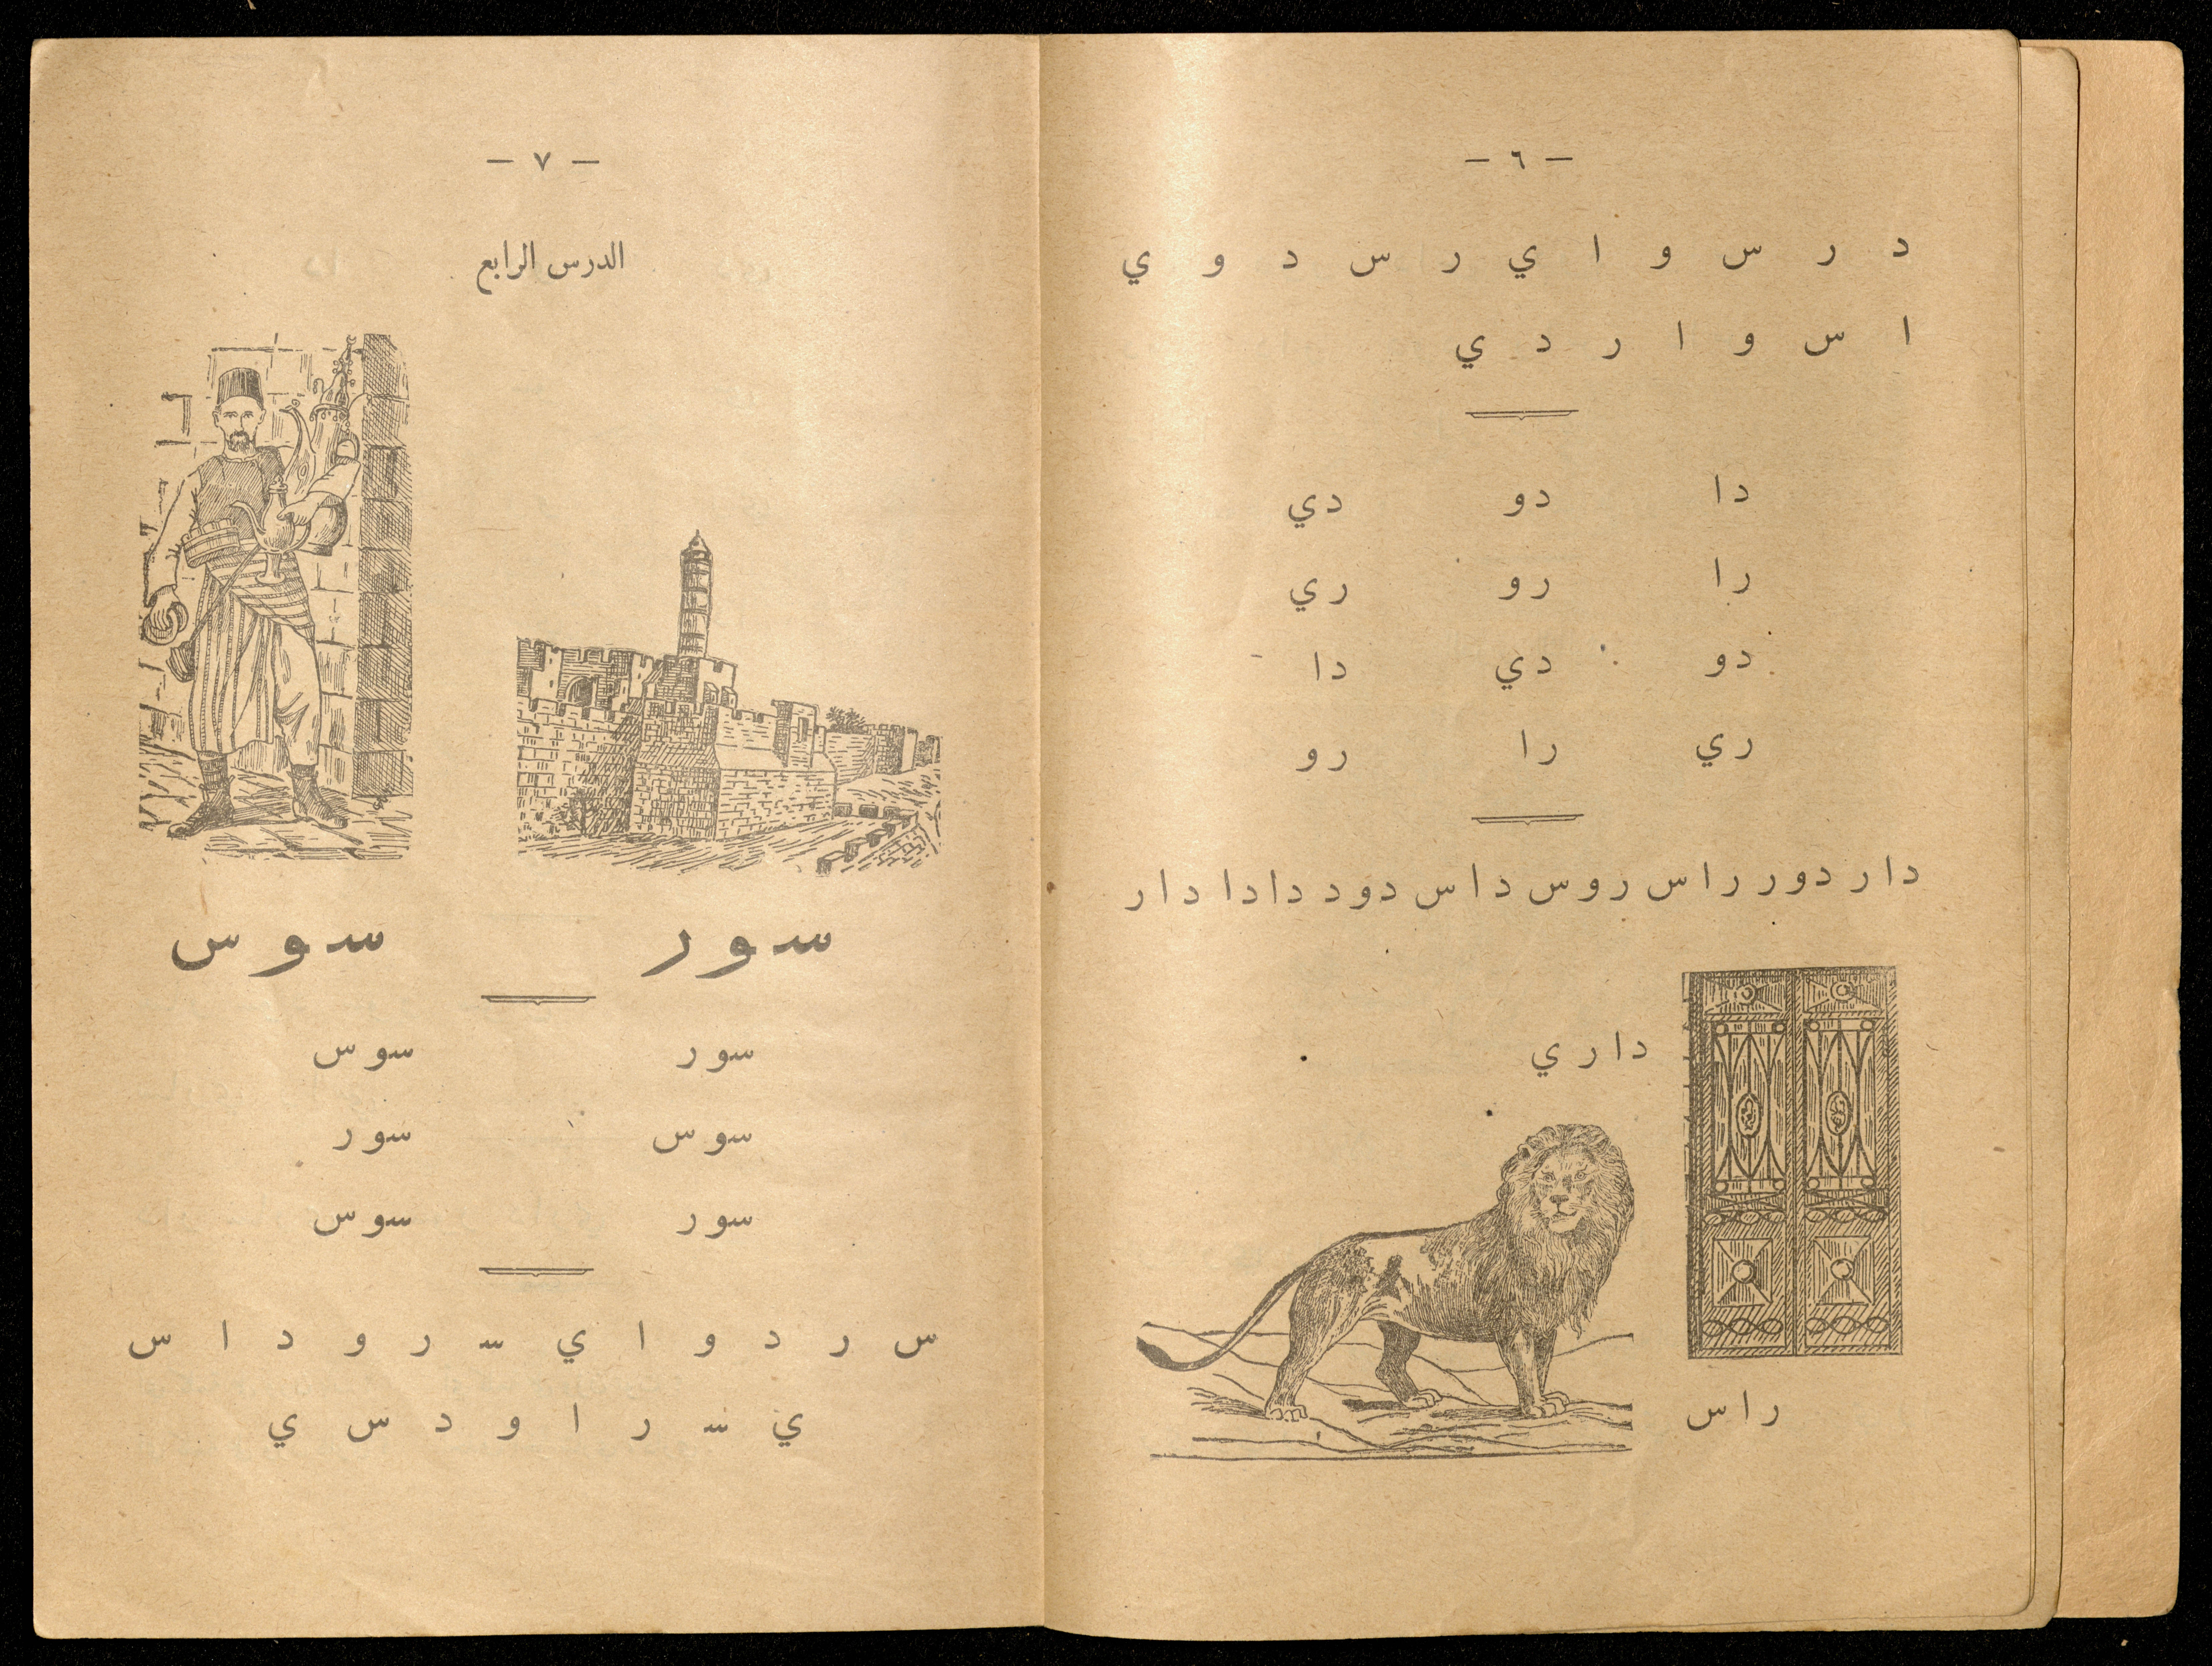 — ٦ —
د ر س و ا ي ر س د و ي
ا س و ا ر د ي
دا دو دي
را رو ري
دو دي دا
ري را رو
دار دور راس روس داس دود دادا دار
داري
راس
— ٧ —
الدرس الرابع
سور سوس
سور سوس
سوس سور
سور سوس
س ر د و ا ي سـ ر و د ا س
ي سـ ر ا و د س ي